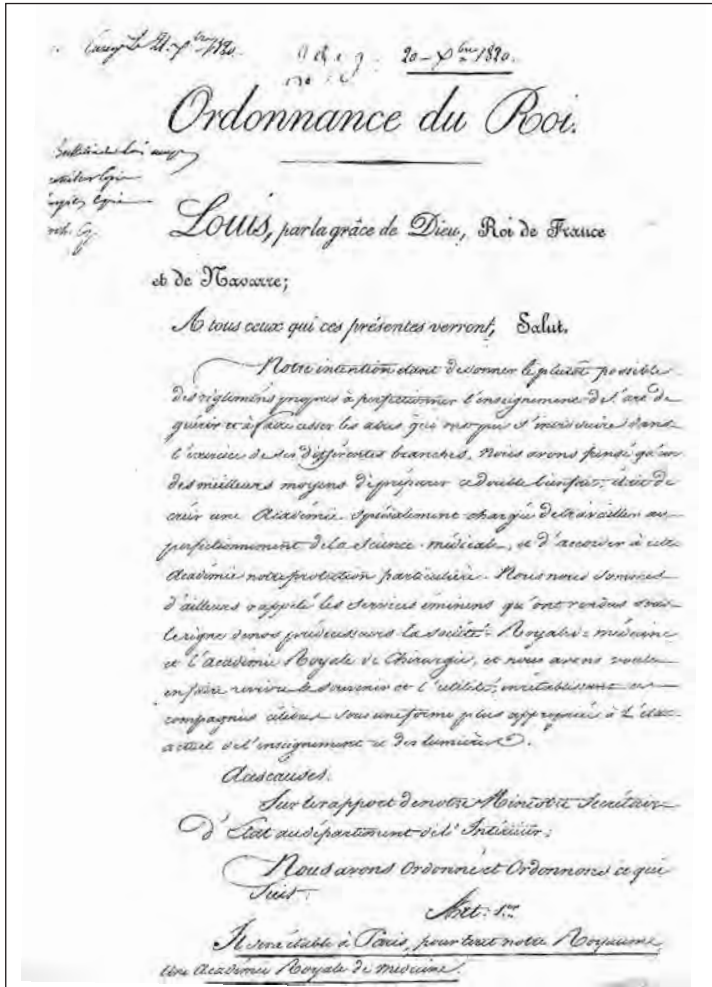 Le 21 Xbre 1820.
20 - Xbre 1820.
Ordonnance du Roi.
Louis, par la grâce de Dieu, Roi de France
et de Navarre;
A tous ceux qui ces présentes verront, Salut.
Notre intention étant de donner le plutôt possible
des réglemens propres à perfectionner l'enseignement de l'art de
guérir et à faire cesser les abus qui ont pu s'introduire dans
l'exercice de ses différentes branches, Nous avons pensé qu'un
des meilleurs moyens de préparer ce double bienfait était de
créer une Académie spécialement chargée de travailler au
perfectionnement de la science médicale, et d'accorder à cette
Académie notre protection particulière. Nous nous sommes
d'ailleurs rappelé les services éminens qu'ont rendus sous
le règne de nos prédécesseurs la société Royale de médecine
et l'académie Royale de Chirurgie, et nous avons voulu
en faire revivre le souvenir et l'utilité, en rétablissant ces
compagnies célèbres sous une forme plus appropriée à l'état
actuel de l'enseignement et des lumières.
A ces causes.
Sur le rapport de notre Ministre Secrétaire
d'Etat au département de l'Intérieur;
Nous avons Ordonné et Ordonnons ce qui
Suit.
Art. 1.er
Il sera établi à Paris, pour tout notre Royaume
Une Académie Royale de médecine.